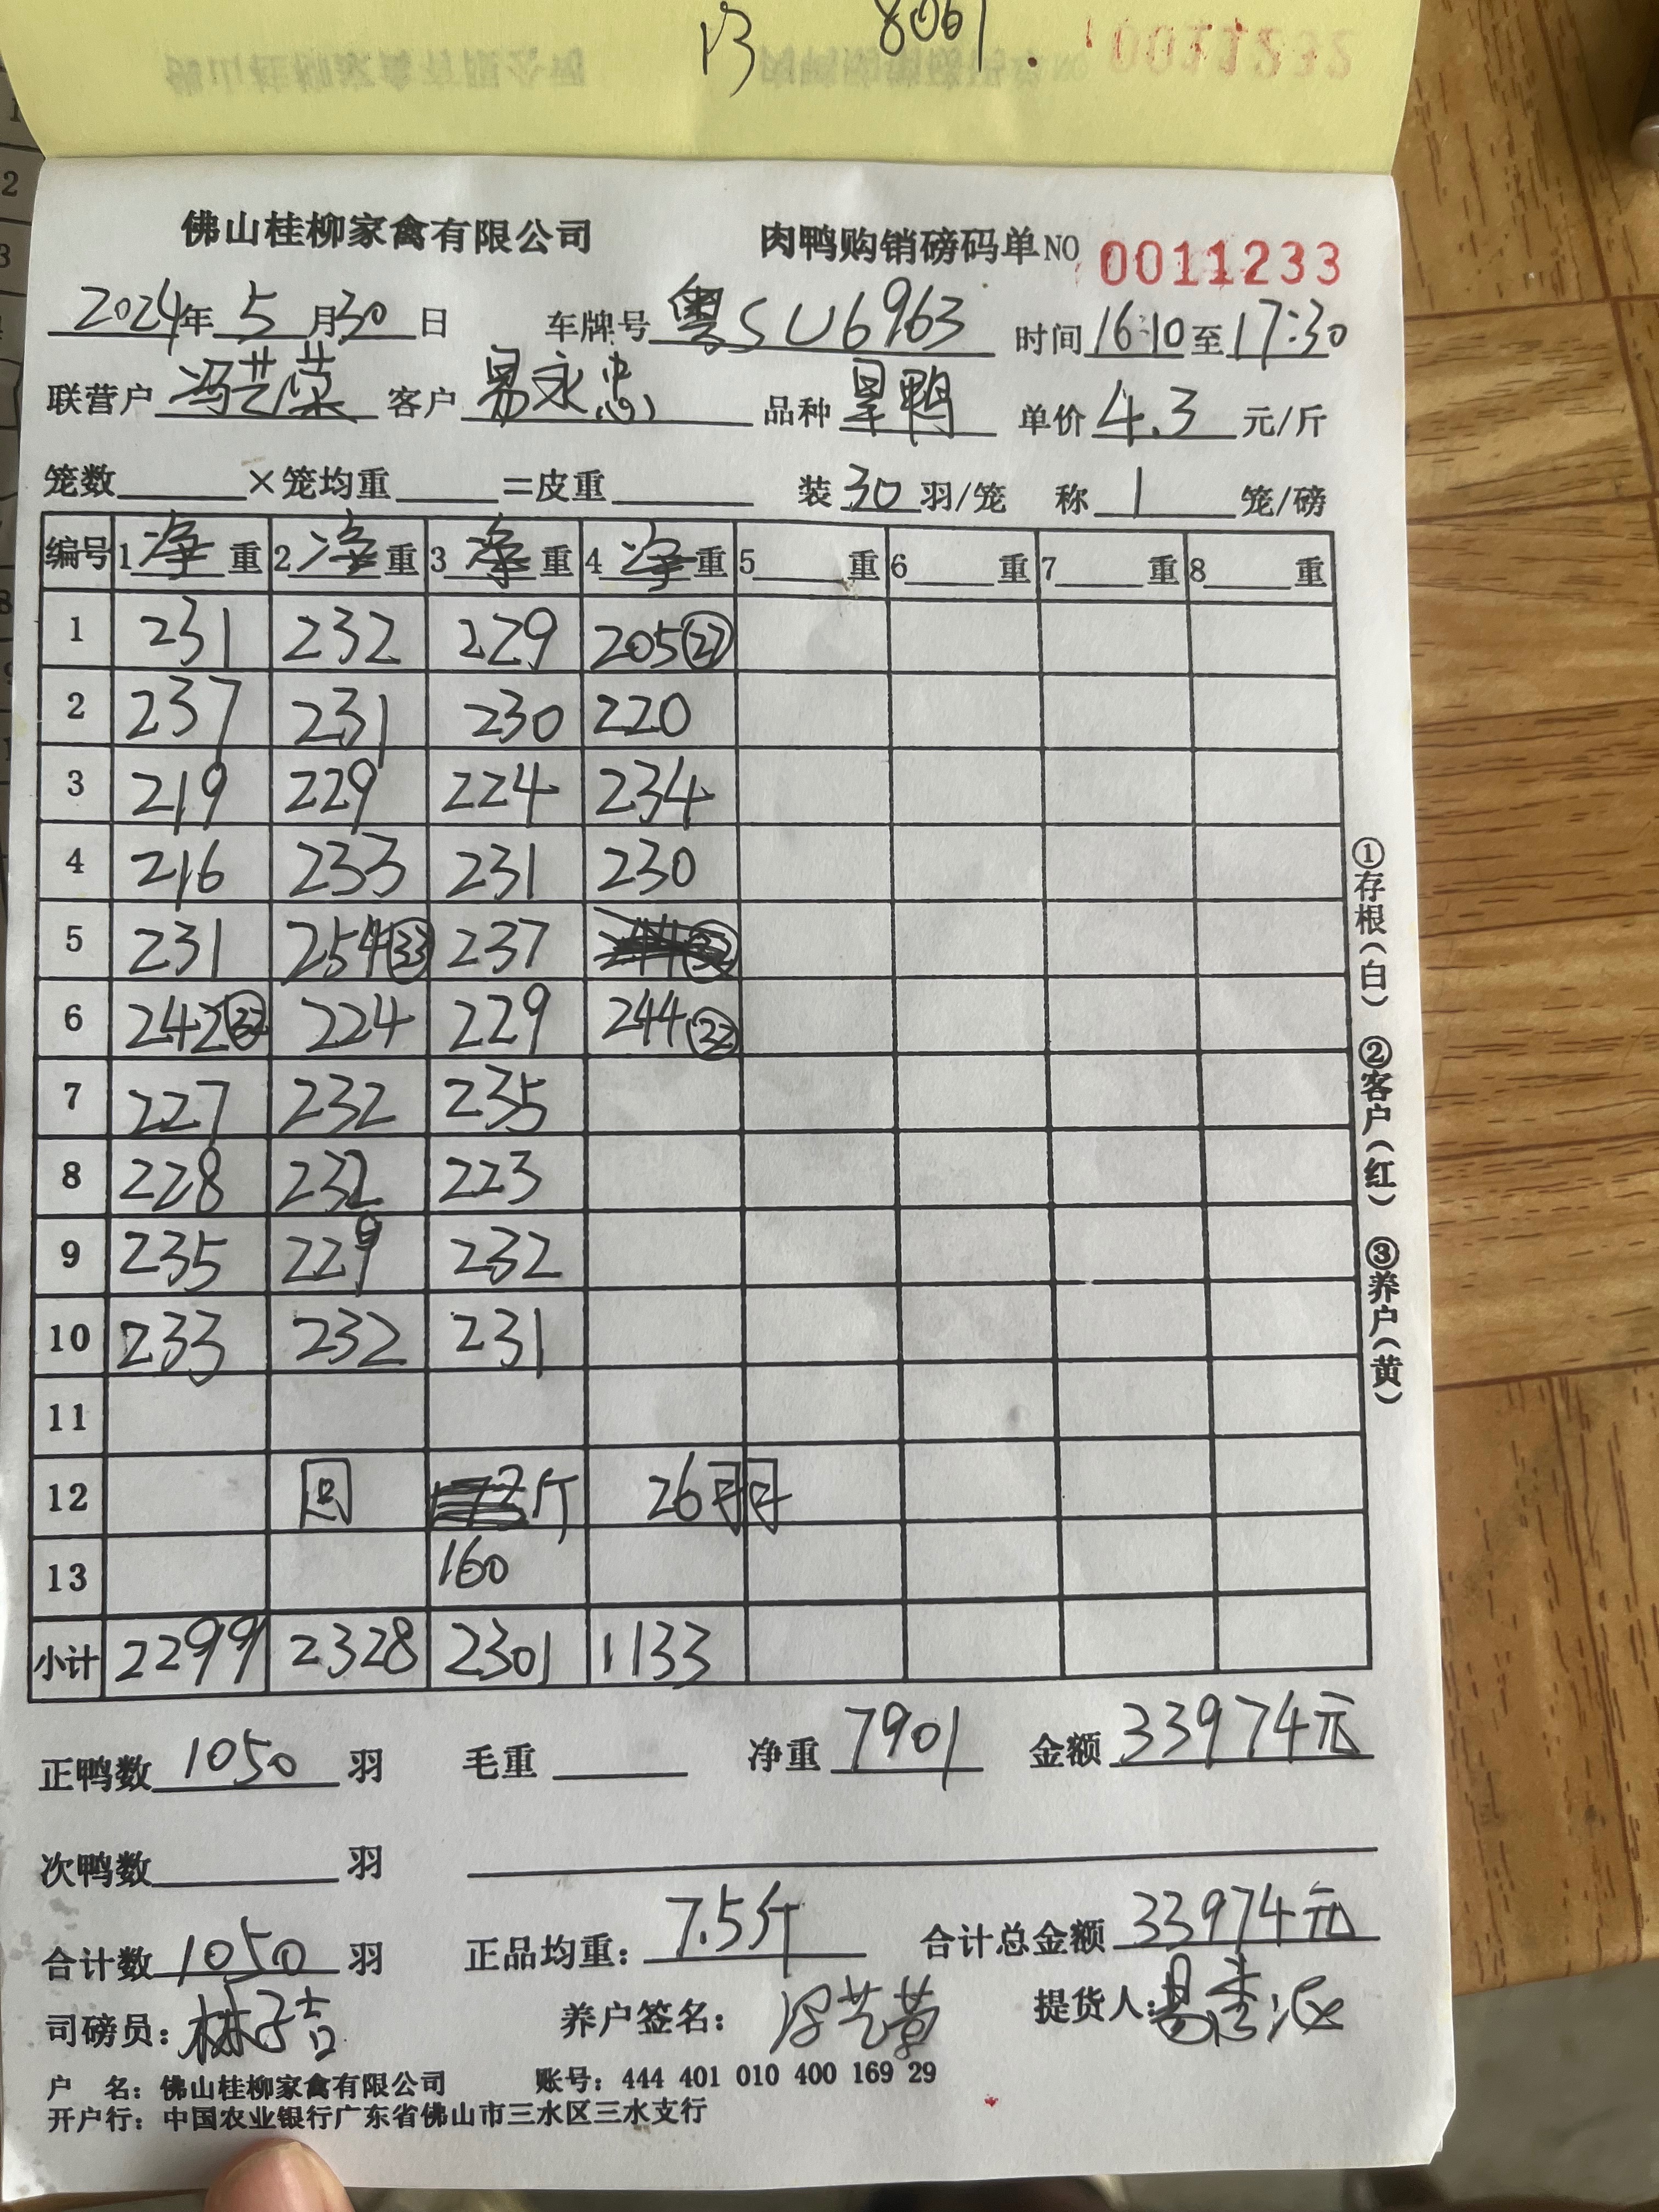 13 8061.
佛山桂柳家禽有限公司 肉鸭购销磅码单NO 0011233
2024年 5 月 30 日 车牌号 粤SU6963 时间 16:10 至 17:30
联营户 冯艺菜 客户 易永忠 品种 旱鸭 单价 4.3 元/斤
笼数 ×笼均重 =皮重 装 30 羽/笼 称 1 笼/磅
编号 1 净 重 2 净 重 3 净 重 4 净 重 5 重 6 重 7 重 8 重
1 231 232 229 205 27
2 237 231 230 220
3 219 229 224 234
4 216 233 231 230
5 231 254 33 237
6 242 32 224 229 244 32
7 227 232 235
8 228 232 223
9 235 229 232
10 233 232 231
11
12 回 斤 26羽
13 160
小计 2299 2328 2301 1133
正鸭数 1050 羽 毛重 净重 7901 金额 33974元
次鸭数 羽
合计数 1050 羽 正品均重: 7.5斤 合计总金额 33974元
司磅员: 林子吉 养户签名: 提货人:
户 名: 佛山桂柳家禽有限公司 账号: 444 401 010 400 169 29
开户行: 中国农业银行广东省佛山市三水区三水支行
①存根(白) ②客户(红) ③养户(黄)